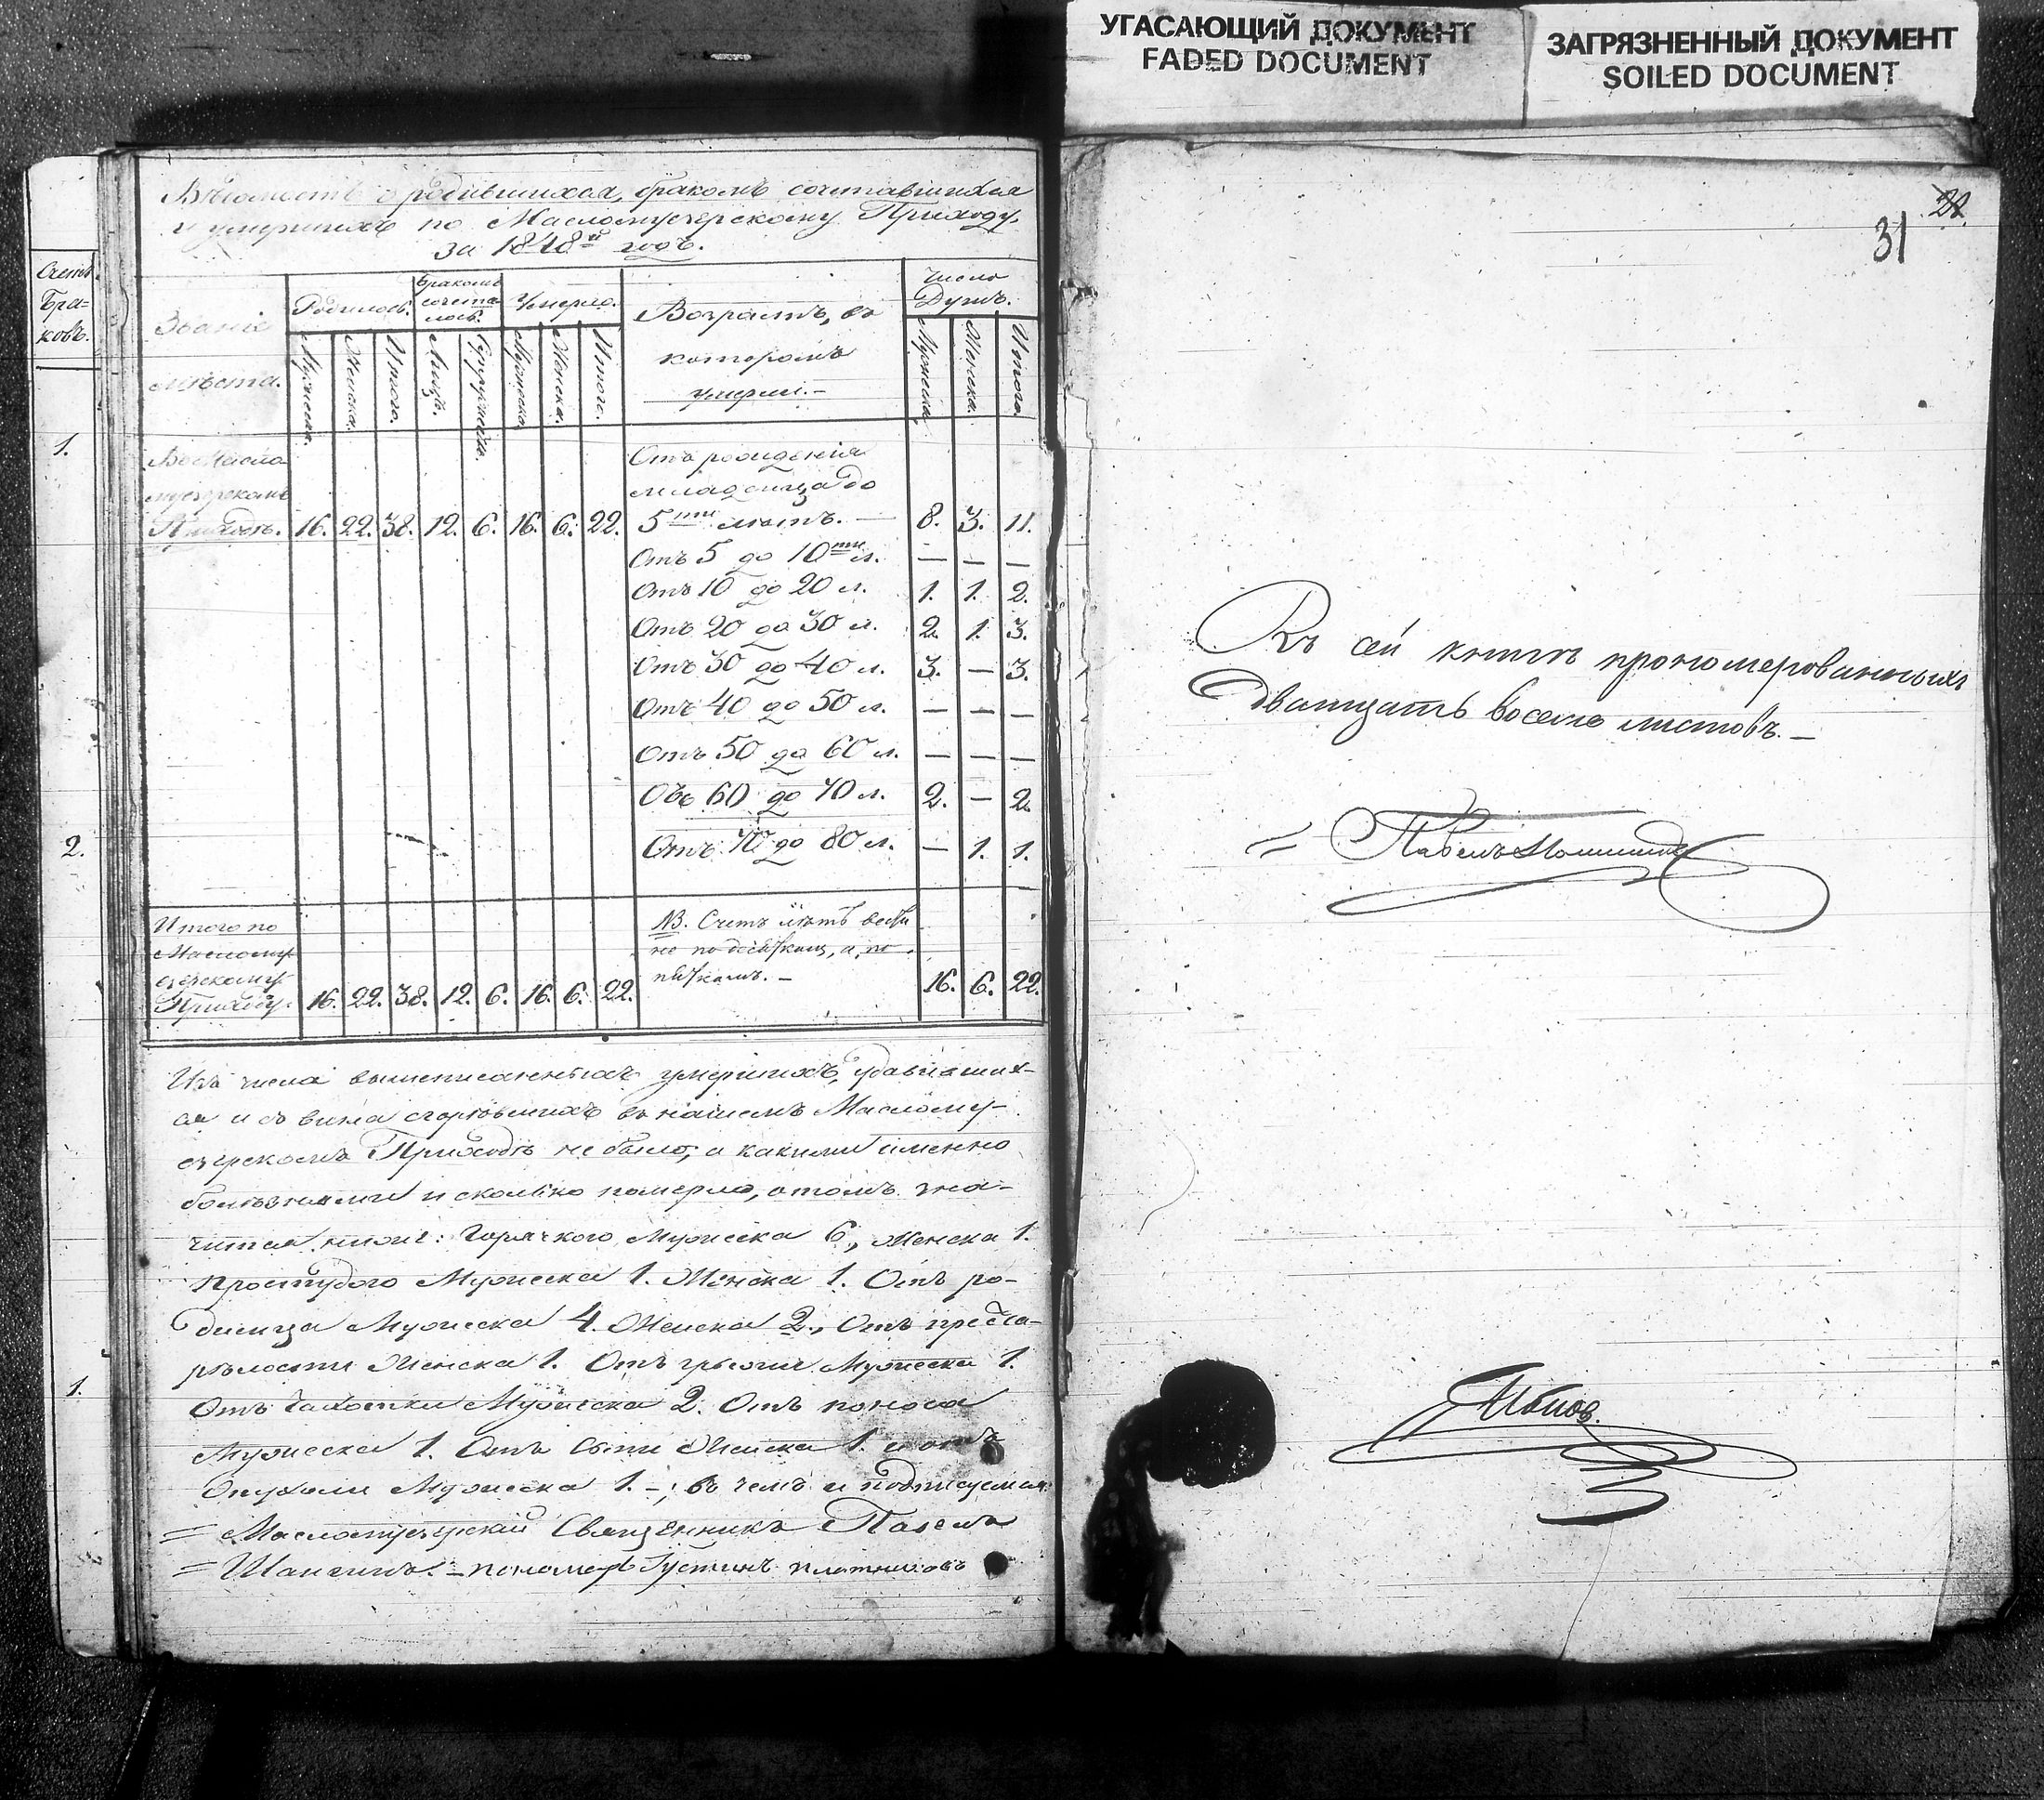 УГАСАЮЩИЙ ДОКУМЕНТ
FADED DOCUMENT
ЗАГРЯЗНЕННЫЙ ДОКУМЕНТ
SOILED DOCUMENT
Счетъ
Бра-
ковъ.
1.
2.
1.
Вѣдомость о родившихся, бракомъ сочетавшихся
и умершихъ по Масломуезерскому Приходу,
за 1848й годъ.
Званіе
мѣста.
Родилось.
Бракомъ
сочета
лось.
Умерло.
Возрастъ, въ
которомъ
умерли.-
Число
Душъ.
Мужеска.
Женска.
Итого.
Лицъ.
Супружествъ.
Мужеска.
Женска.
Итого.
Мужеска.
Женска.
Итого.
Въ Масло
муезерскомъ
Приходѣ. 16. 22. 38. 12. 6. 16. 6. 22.
Отъ рожденія
младенца до
5ти лѣтъ. — 8. 3. 11.
Отъ 5 до 10ти л. — — —
Отъ 10 до 20 л. 1. 1. 2.
Отъ 20 до 30 л. 2. 1. 3.
Отъ 30 до 40 л. 3. — 3.
Отъ 40 до 50 л. — — —
Отъ 50 до 60 л. — — —
Отъ 60 до 70 л. 2. — 2.
Отъ 70 до 80 л. — 1. 1.
Итого по
Маслому
езерскому
Приходу. 16. 22. 38. 12. 6. 16. 6. 22.
NB. Счетъ лѣтъ вести
не по десяткамъ, а по
пяткамъ. –
16. 6. 22.
Изъ числа вышеписанныхъ умершихъ, удавивших-
ся и съ вина сгорѣвшихъ въ нашемъ Маслому-
езерскомъ Приходѣ не было, а какими именно
болѣзнями и сколько померло, о томъ зна-
чится ниже: Горячкою Мужеска 6, Женска 1.
Простудою Мужеска 1. Женска 1. Отъ ро-
димца Мужеска 4. Женска 2., Отъ преста-
рѣлости Женска 1. Отъ грыжи Мужеска 1.
Отъ Чахотки Мужеска 2. Отъ поноса
Мужеска 1. Отъ Сыпи Женска 1. и отъ
Опухоли Мужеска 1. –; въ чемъ и подписуемся:
= Масломуезерскій Священникъ Павелъ
= Шангинъ. – пономарь Густинъ плотниковъ
28.
31
Въ сей книгѣ прономерованныхъ
дватцать восемь листовъ. –
= Павелъ